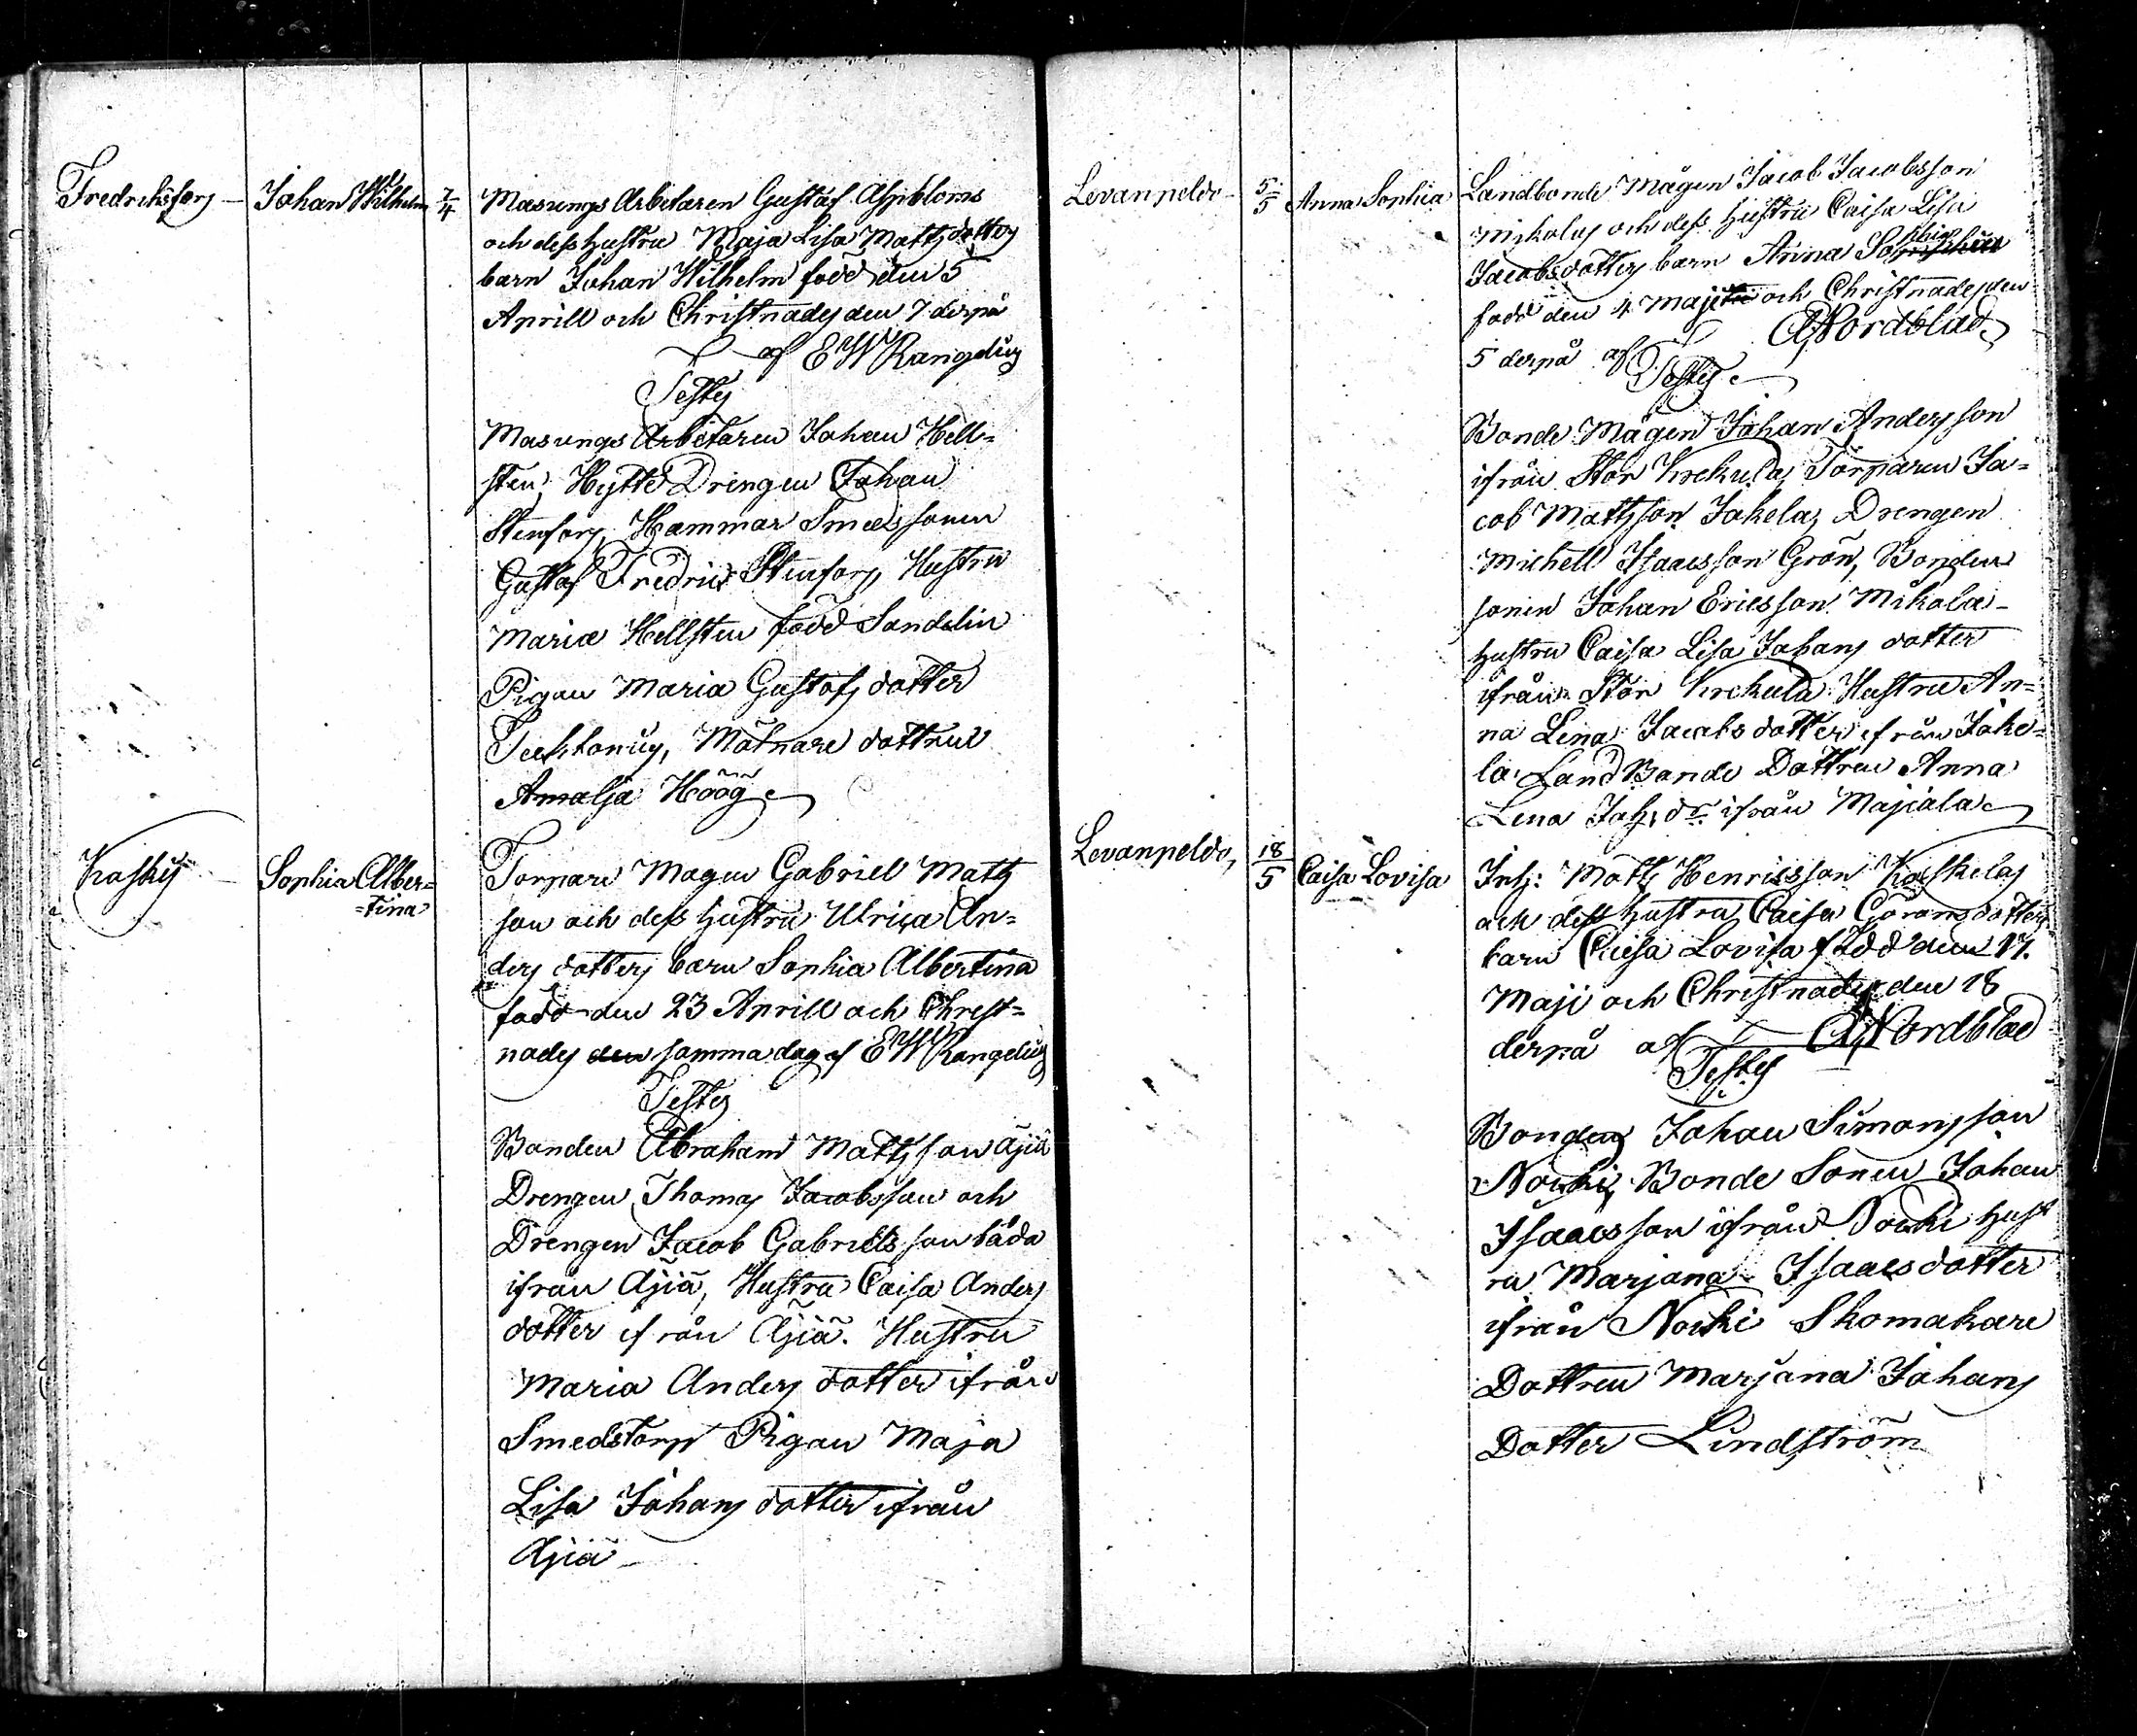 Fredriksfors
Johan Wilhelm
7/4
Masungs Arbetaren Gustaf Aspbloms
och dess hustru Maja Lisa Matts dotters
barn Johan Wilhelm född den 5
Aprill och Christnades den 7 derpå
af E W Rangelius
Testes
Masungs Arbetaren Johan Hell=
sten, Hytte Drengen Johan
Stenfors, Hammar Smeds sonen
Gustaf Fredric Stenfors, Hustru
Maria Hellsten född Sandelin
Pigan Maria Gustafs dotter
Mätnare dottren
Amalja Höög
Koskis
Sophia Alber=
=tina
Torpare Magen Gabriell Matts
son och dess hustru Ulrica An=
ders dotters barn Sophia Albertina
född den 23 Aprill och Christ=
nades den samma dag af E W Rangelius
Testes
Bonden Abraham Mattsson Äjiä
Drengen Thomas Jacobsson och
Drengen Jacob Gabriels son båda
ifrån Äjiä, Hustru Caisa Anders
dotter ifrån Äjiä. Hustru
Maria Anders dotter ifrån
Smedstorp Pigan Maja
Lisa Johans dotter ifrån
Äjiä
Levanpeldo
5/5
Anna Sophia
Landbonde Mågen Jacob Jacobsson
Mikolas och dess hustru Caisa Lisa
Jacobs dotters barn Anna Sophia
född den 4 Maji och Christnades den
5 derpå af A Nordblad
Testes
Bonde Mågen Johan Andersson
ifrån Stor Krekula, Torparen Ja=
cob Mattsson Jakela, Drengen
Michell Isaacsson Grön, Bonden
sonen Johan Ericsson Mikola
hustru Caisa Lisa Johans dotter
ifrån Stor Krekula Hustru An=
na Lena Jacobs dotter ifrån Jake=
la, Land Bonde Dottren Anna
Lena Joh: dr ifrån Majiala
Levanpeldo,
18/5
Caisa Lovisa
Inh: Matts Henricsson Koskelas
och dess hustru Caisa Görans dotters
barn Caisa Lovisa född den 17.
Maji och Christnades den 18
derpå af A Nordblad
Testes
Bonden Johan Simonsson
Nocki, Bonde Sonen Johan
Isaacsson ifrån Nocki hust
ru Marjana Isaacs dotter
ifrån Nocki Skomakare
Dottren Marjana Johans
Dotter Lindström